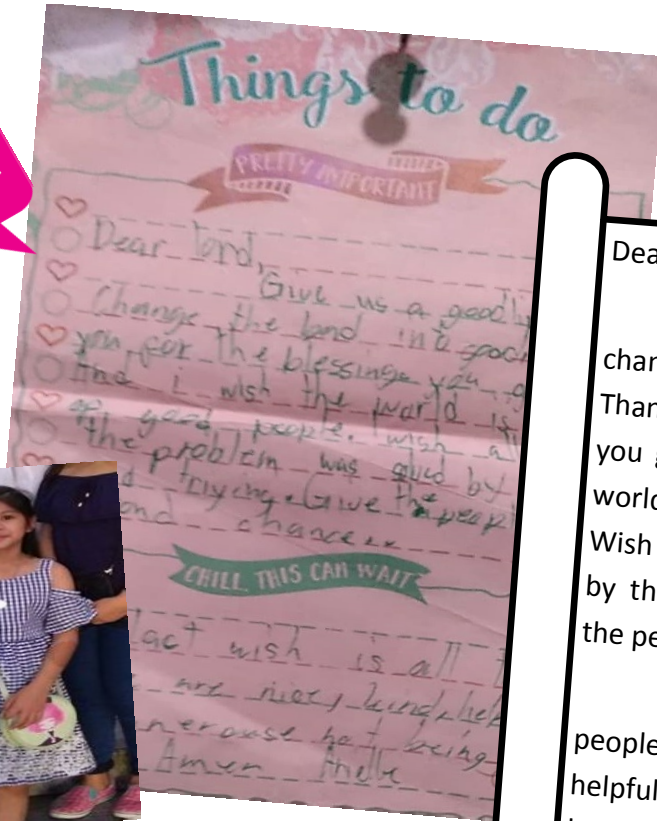 Things to do
PRETTY IMPORTANT
Dear lord,
Give us a good
Change the land into good
you for the blessings you g
And i wish the world is
of good people. wish al
the problem was by
trying. Give the peopl
ond chance
CHILL, THIS CAN WAIT
last wish is all
are nice, kind, hel
nerouse not being
Amen
Dea
chan
Than
you g
world
Wish
by th
the pe
people
helpful